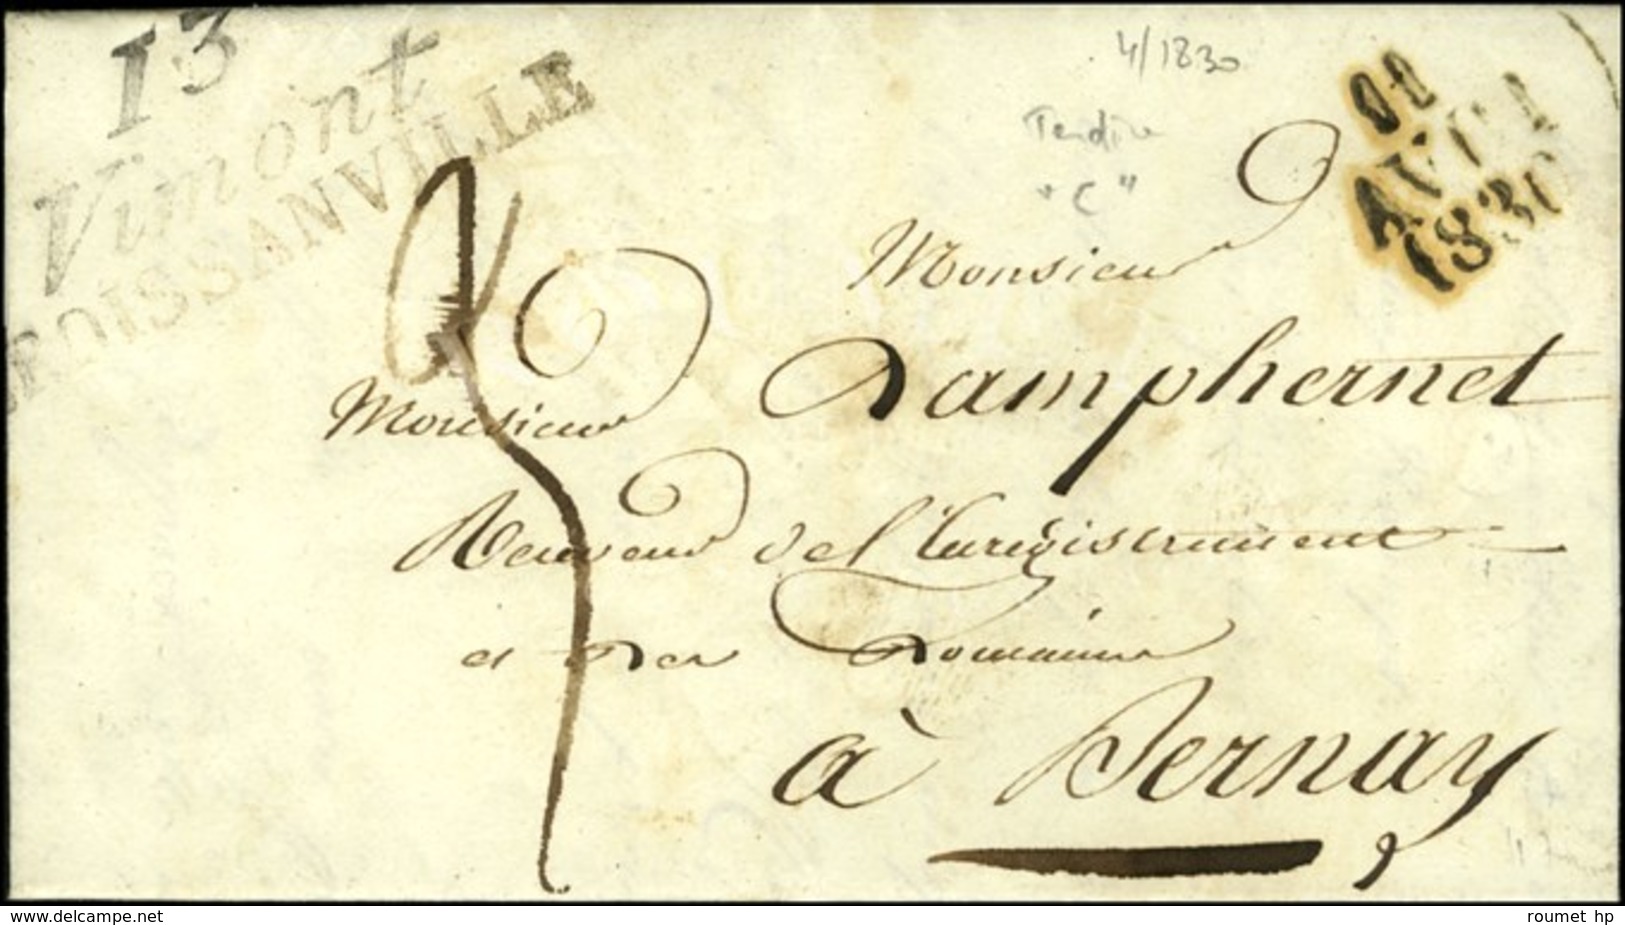 13
Vimont
CROISSANVILLE
4/1830
Tendire
"C"
AVRI
1830
Monsieur
Damphernet
Monsieur
Receveur de l'Enregistrement
et des Domaines
à Bernay
www.delcampe.net
roumet hp